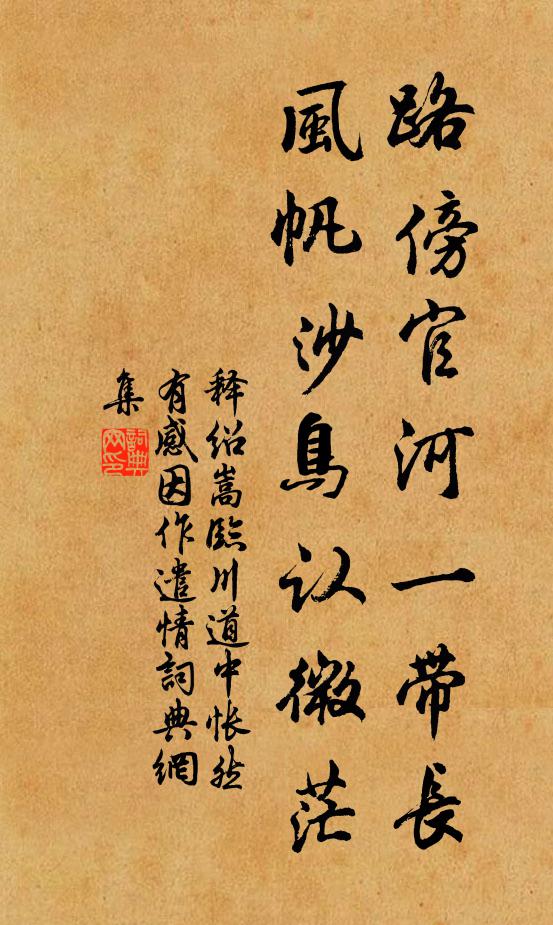 路傍官河一帶長
風帆沙鳥认微茫
释绍嵩臨川道中怅然
有感因作遣情詞典網
集
詞典
网印